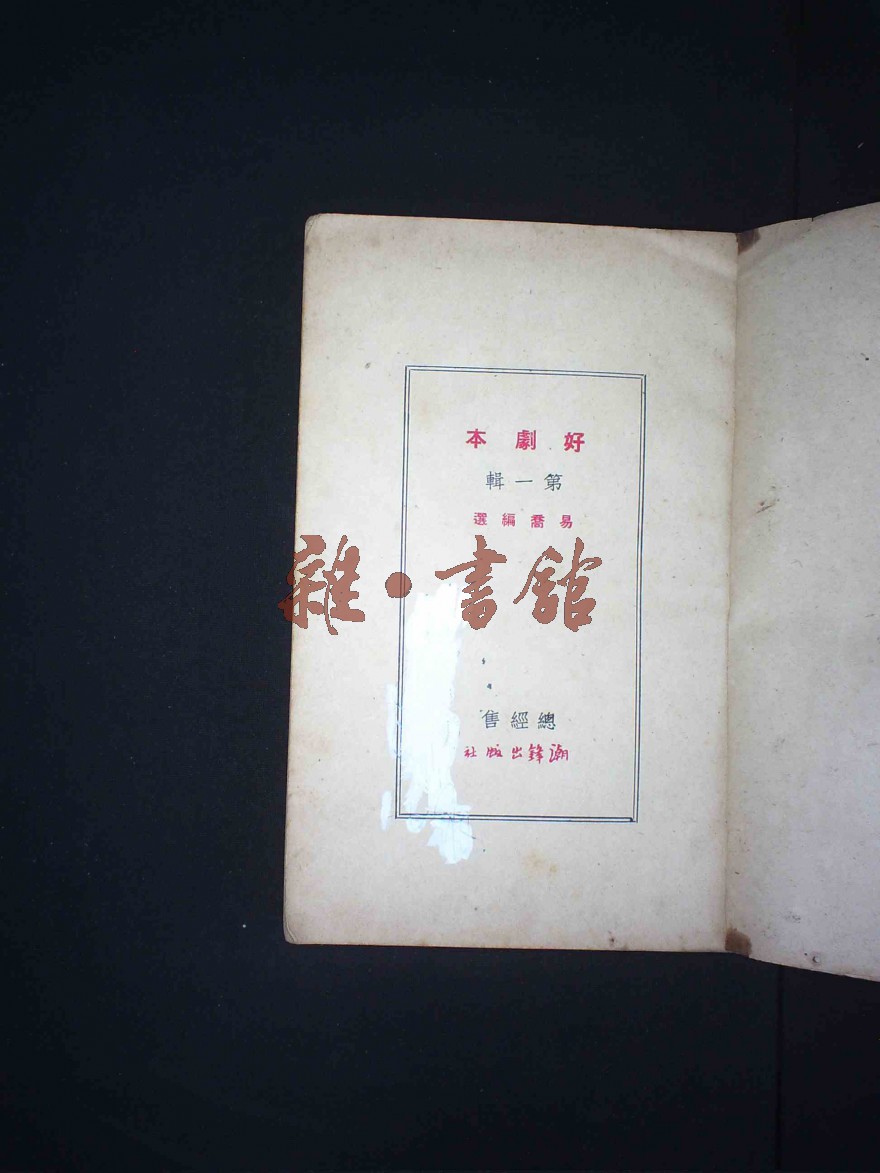 好劇本
第一輯
易喬編選
雜·書舘
總經售
潮鋒出版社